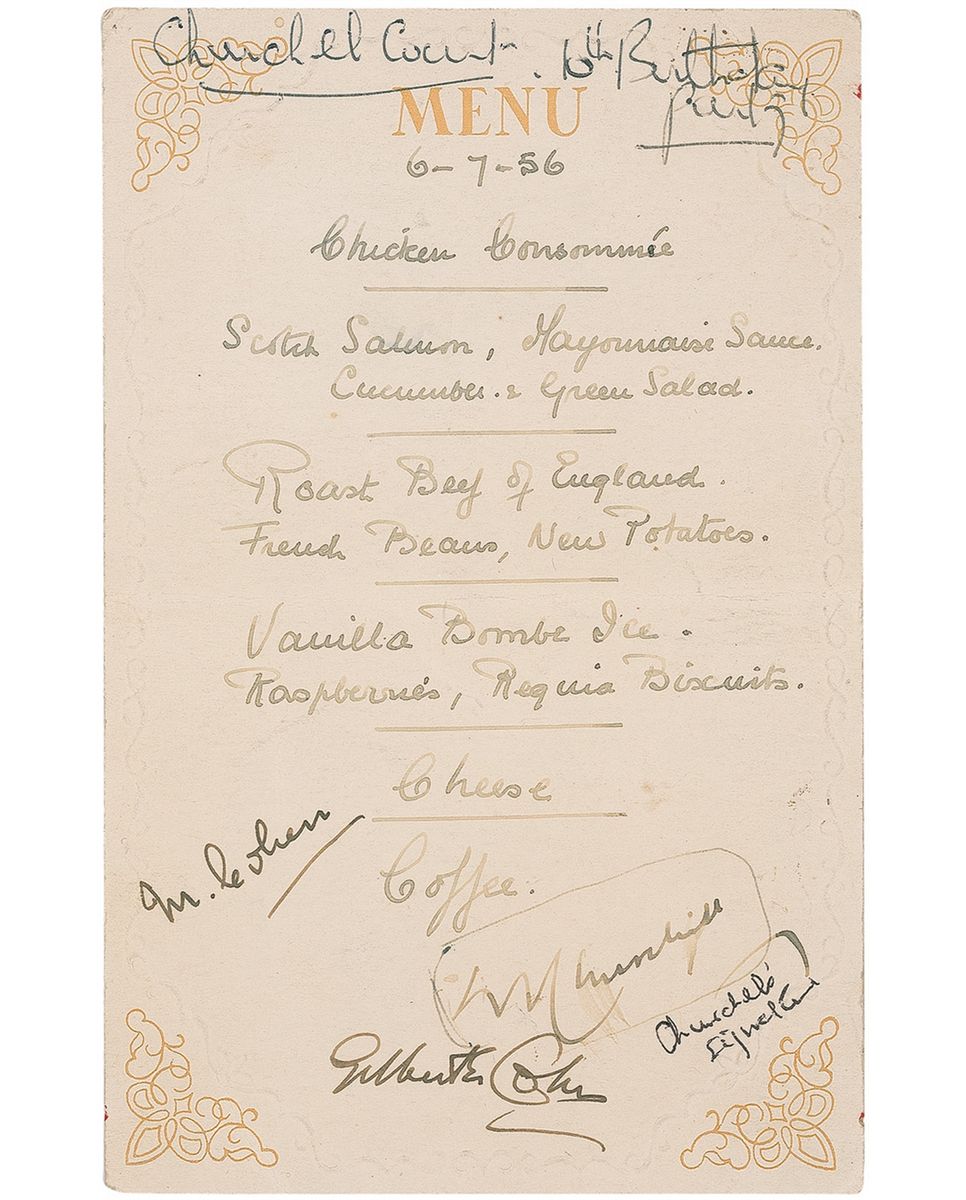 Churchel Court. 10th Birthday
party
MENU
6-7-56
Chicken Consommée
Scotch Salmon, Mayonnaise Sauce.
Cucumber. & Green Salad.
Roast Beef of England.
French Beans, New Potatoes.
Vanilla Bombe Ice.
Raspberries, Biscuits.
Cheese
Coffee.
M. Cohen
W Churchill
Churchel's
Signature
Gilbert Cohn